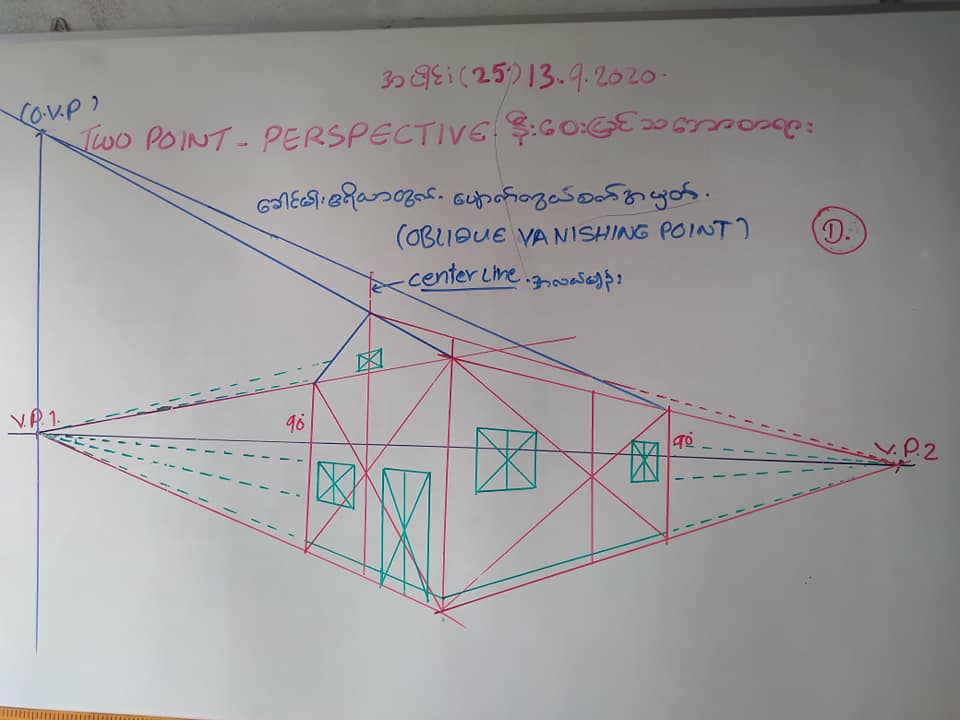 အပိုင်း(25) 13.9.2020.
(O.V.P)
TWO POINT - PERSPECTIVE နီးဝေးမြင်သဘောတရား
ခေါင်မိုးဧရိယာတွက်. ပျောက်ကွယ်စက်အမှတ်.
(OBLIQUE VANISHING POINT)
D.
center line. အလယ်မျဉ်း
V.P.1.
90
90
V.P.2